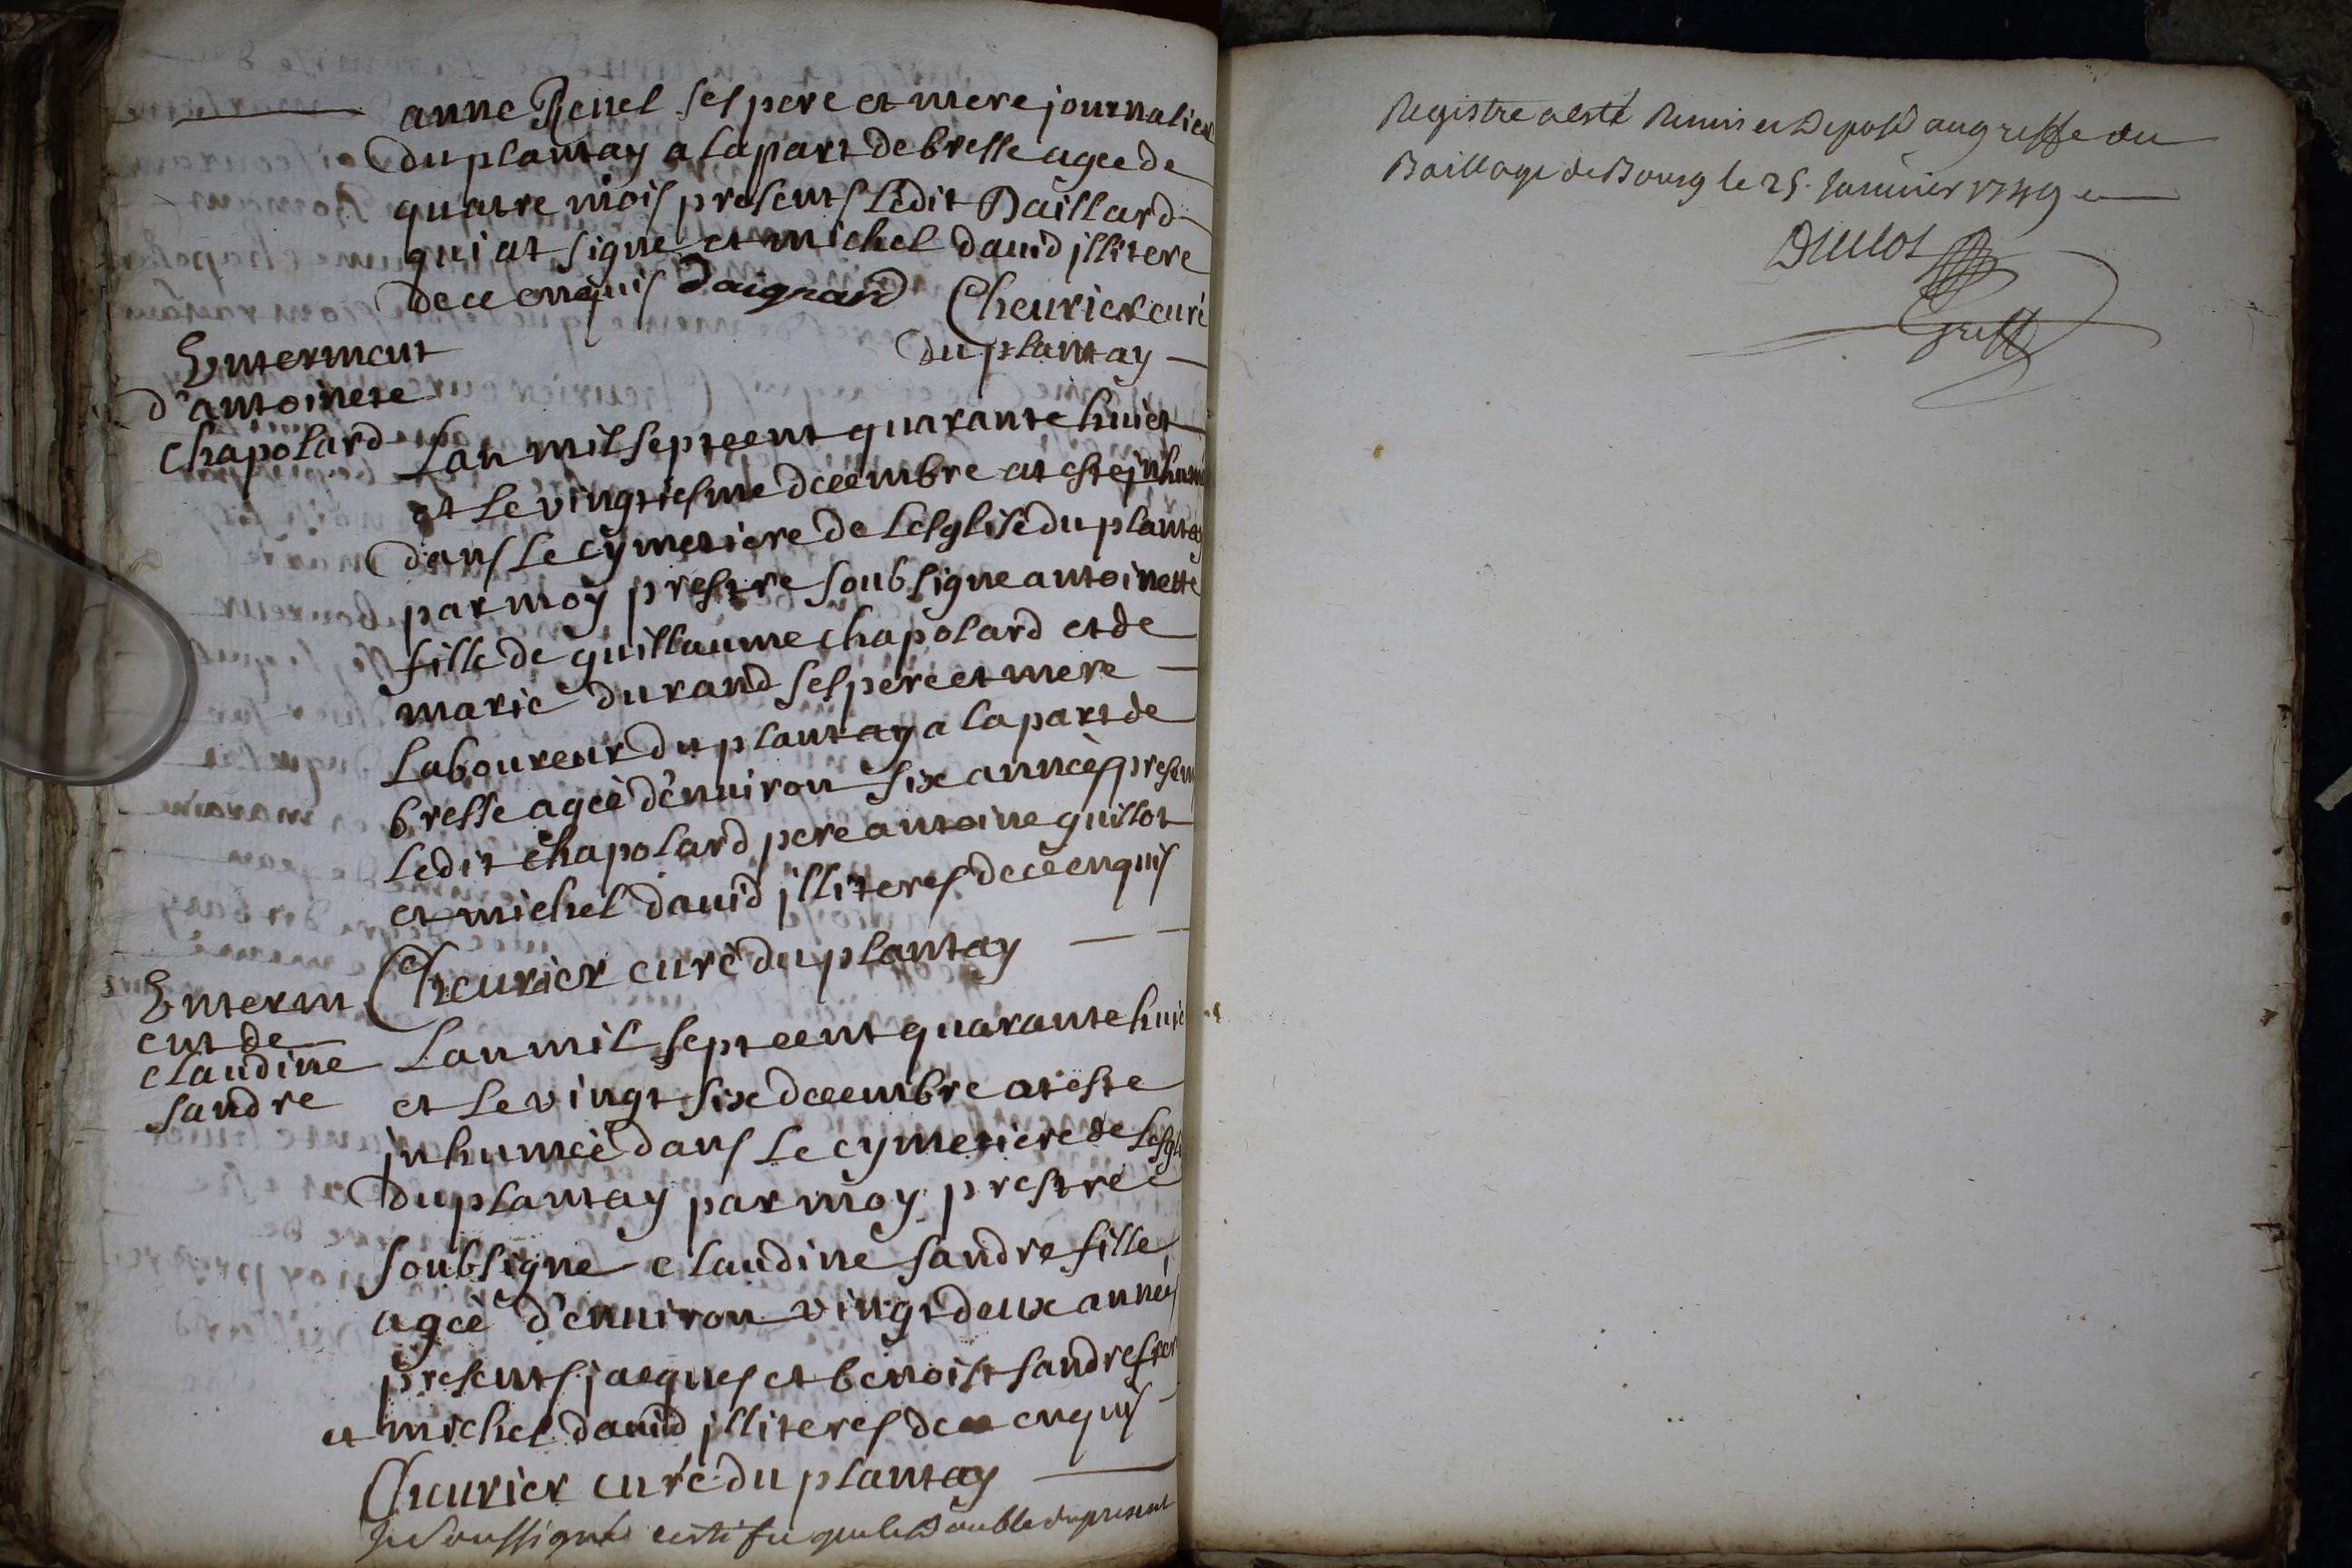 anne Renel ses pere et mere journalier
du plantay a la part de bresse agee de
quatre mois presents ledit Daillard
qui at signe et michel david jllitere
de ce enquis Daignard Cheurier curé
du plantay
Enterment
d'antoinete
chapolard
Lan mil sept cent quarante huict
et le vingtiesme decembre at este jnhumé
dans le cymetiere de Lesglise du plantay
par moy prestre soubsigne antoinette
fille de guillaume chapolard et de
marie durand ses pere et mere
Laboureur du plantay a la part de
bresse ageè d'enuiron six anneès present
Ledit chapolard pere antoine guillot
et michel dauid jlliteres de ce enquis
Cheurier curè du plantay
Enterm
ent de
claudine
sandre
Lan mil sept cent quarante huic
et le vingt six decembre at este
jnhumeè dans le cymetiere de Lesgli
du plantay par moy prestre
soubsigne claudine sandre fille
ageè d'enuiron vingt deux anneés
presents jacques et benoist sandre frer
et michel dauid jlliteres de ce enquis
Cheurier curé du plantay
Je soussigné certifie que le Double du present
Registre a esté Remis et Deposé au greffe du
Baillage de Bourg le 25. Januier 1749
Greff